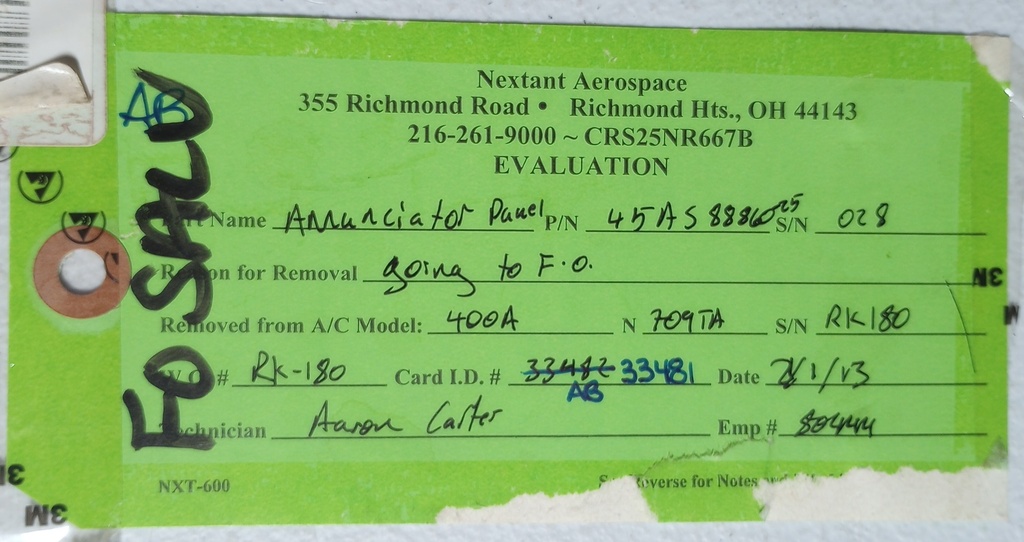 Nextant Aerospace
355 Richmond Road • Richmond Hts., OH 44143
216-261-9000 ~ CRS25NR667B
EVALUATION
Name Annunciator Panel P/N 45AS88860 25 S/N 028
for Removal going to F.O.
Removed from A/C Model: 400A N 709TA S/N RK180
# RK-180 Card I.D. # 33482 33481 Date 2/1/13
AB
Technician Aaron Carter Emp #
NXT-600 Reverse for Notes
FO SALV
AB
3M
3M
3M